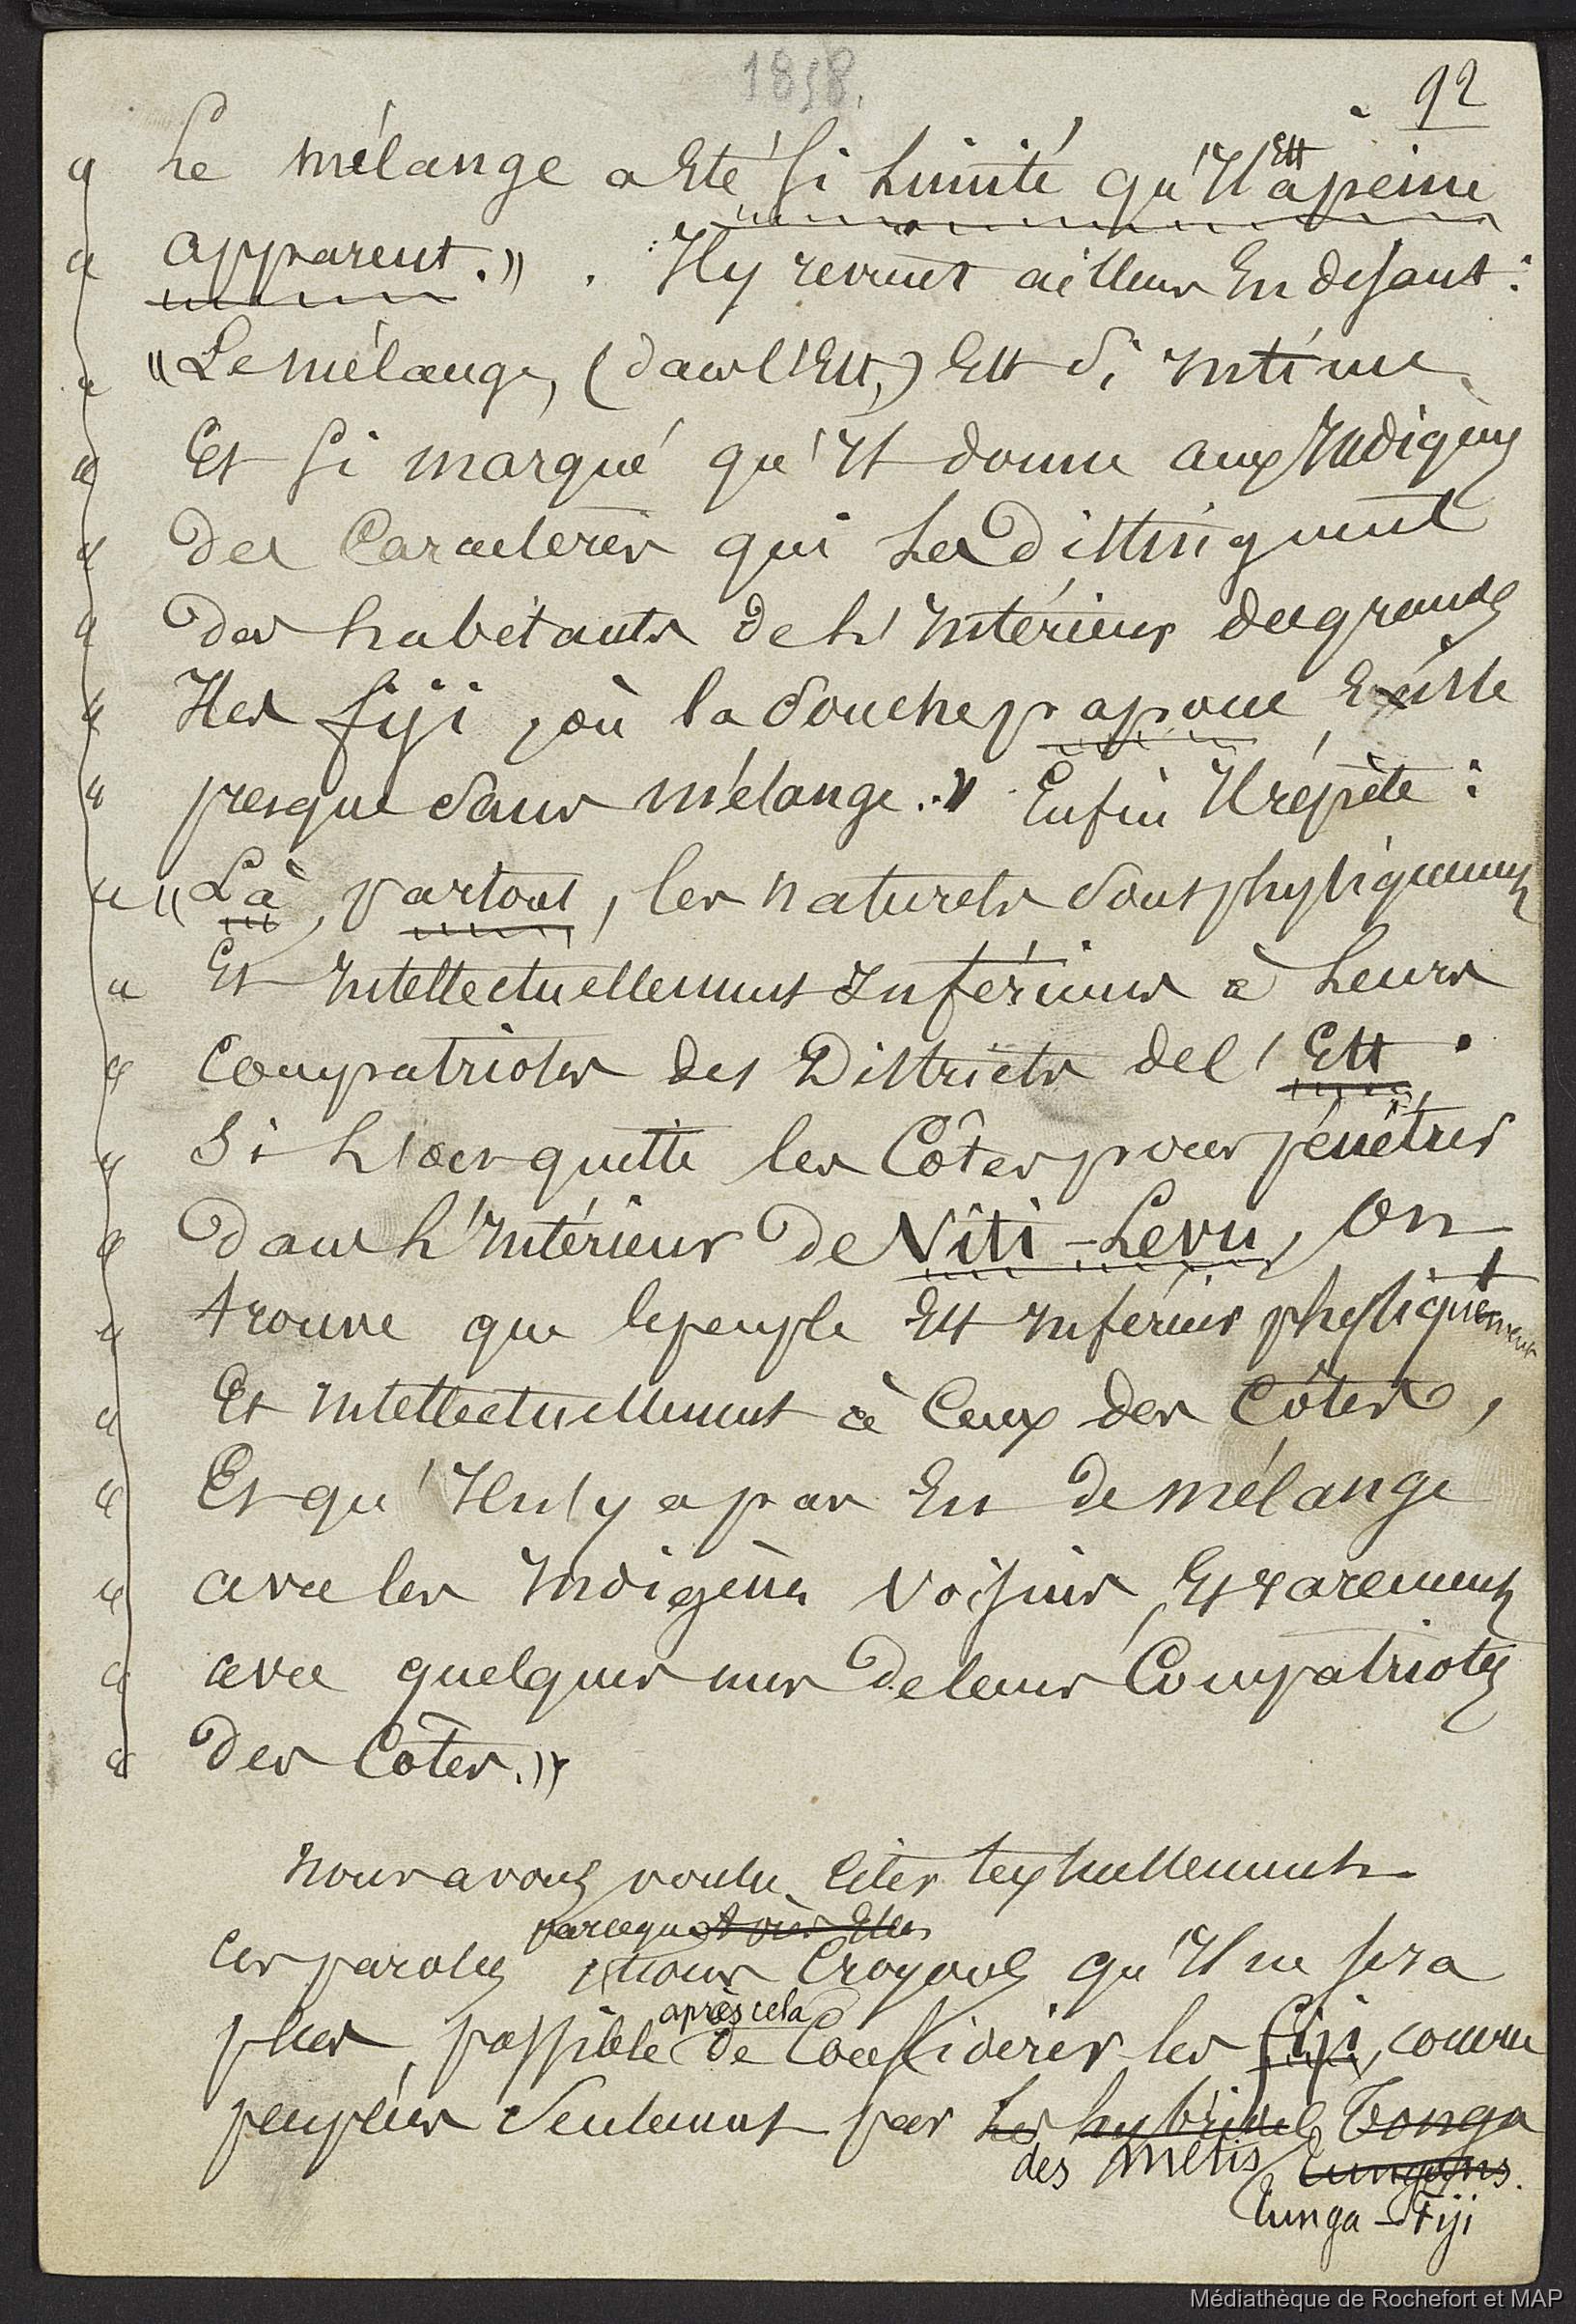 1858.
92
« Le mélange a Eté si Limité qu'Il Est àpeine
« apparent.» . Il y revient ailleurs En disant :
« "Le mélange, (dans l'Est,) Est si intime
« Et si marqué qu'Il donne aux Indigènes
« des Caractères qui Les Distinguent
« des habitants de L'Intérieur des grandes
« Iles fiji, où la souche papoue Existe
« presque sans mélange.» Enfin Il répète :
« "Là, partout, les naturels sont physiquement
« Et Intellectuellement Inférieurs à Leurs
« Compatriotes des Districts de l'Est.
« Si L'on quitte les Côtes pour pénétrer
« dans L'Intérieur de Viti-Levu, On
« trouve que le peuple Est Inférieur physiquement
« Et Intellectuellement à Ceux des Côtes,
« Et qu'Il n'y a pas Eu de mélange
« avec les Indigènes Voisins, Et rarement
« avec quelques uns de leurs Compatriotes
« des Côtes.»
Nous avons voulu Citer textuellement
parceque
Ces paroles nous Croyons qu'Il ne sera
après cela
plus possible de Considérer les fiji, comme
peuplées seulement par Les hybrides Tonga
des métis Tungans.
Tunga-Fiji
Médiathèque de Rochefort et MAP